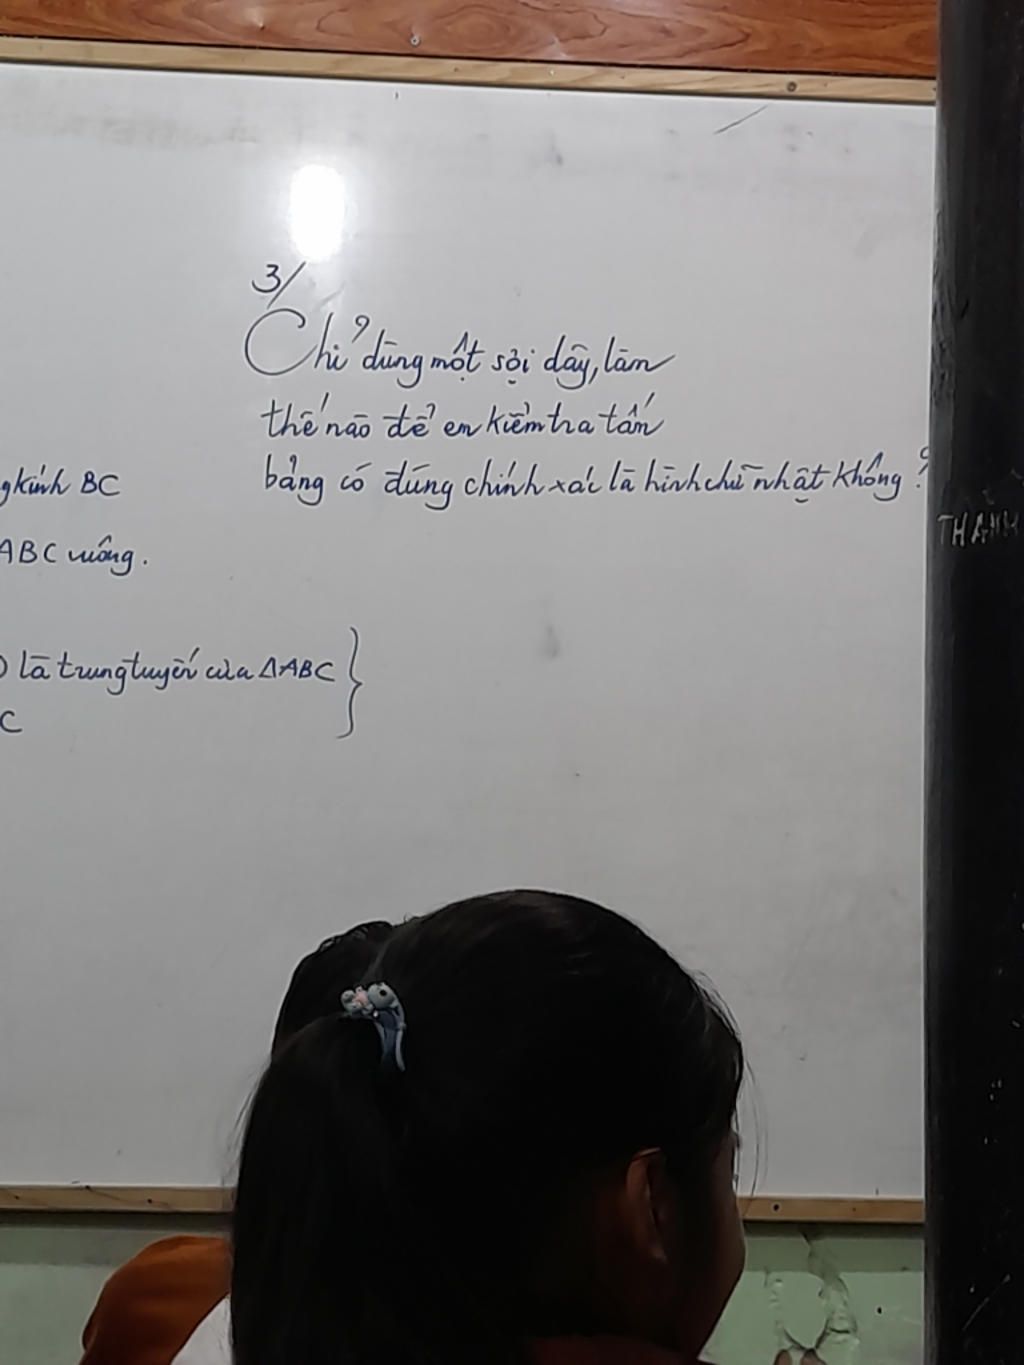 3/
Chỉ dùng một sợi dây, làm
thế nào để em kiểm tra tấm
bảng có đúng chính xác là hình chữ nhật không?
gkính BC
ABC vuông.
là trung tuyến của ΔABC }
C
THANH